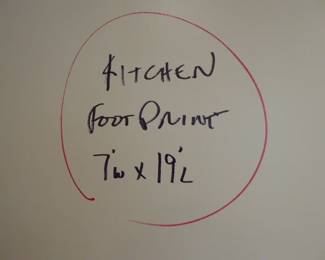 KITCHEN
FOOTPRINT
7'W X 19'L